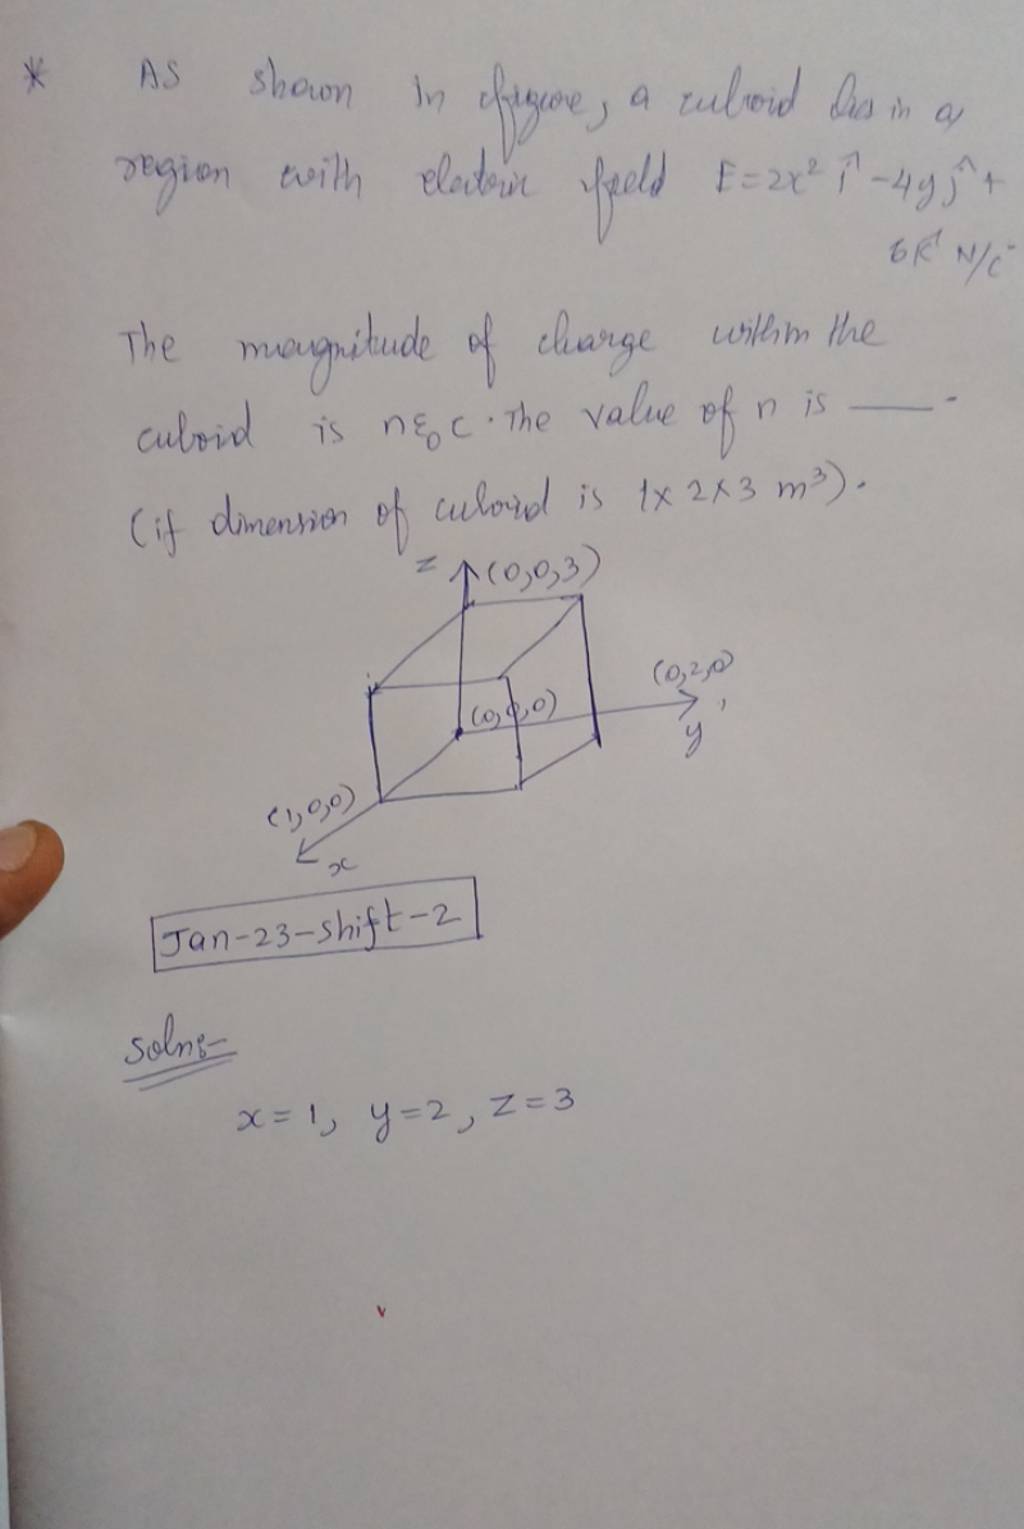 * As shown in figure, a cuboid lies in a
region with electric field E=2x² î -4y ĵ +
6k̂ N/C
The mangnitude of charge within the
cuboid is nε₀ C. The value of n is —— .
(if dimension of cuboid is 1x 2x3 m³).
z (0,0,3)
(0,2,0)
(0,0,0)
y
(1,0,0)
x
Jan-23-shift-2
Soln:-
x=1, y=2, z=3